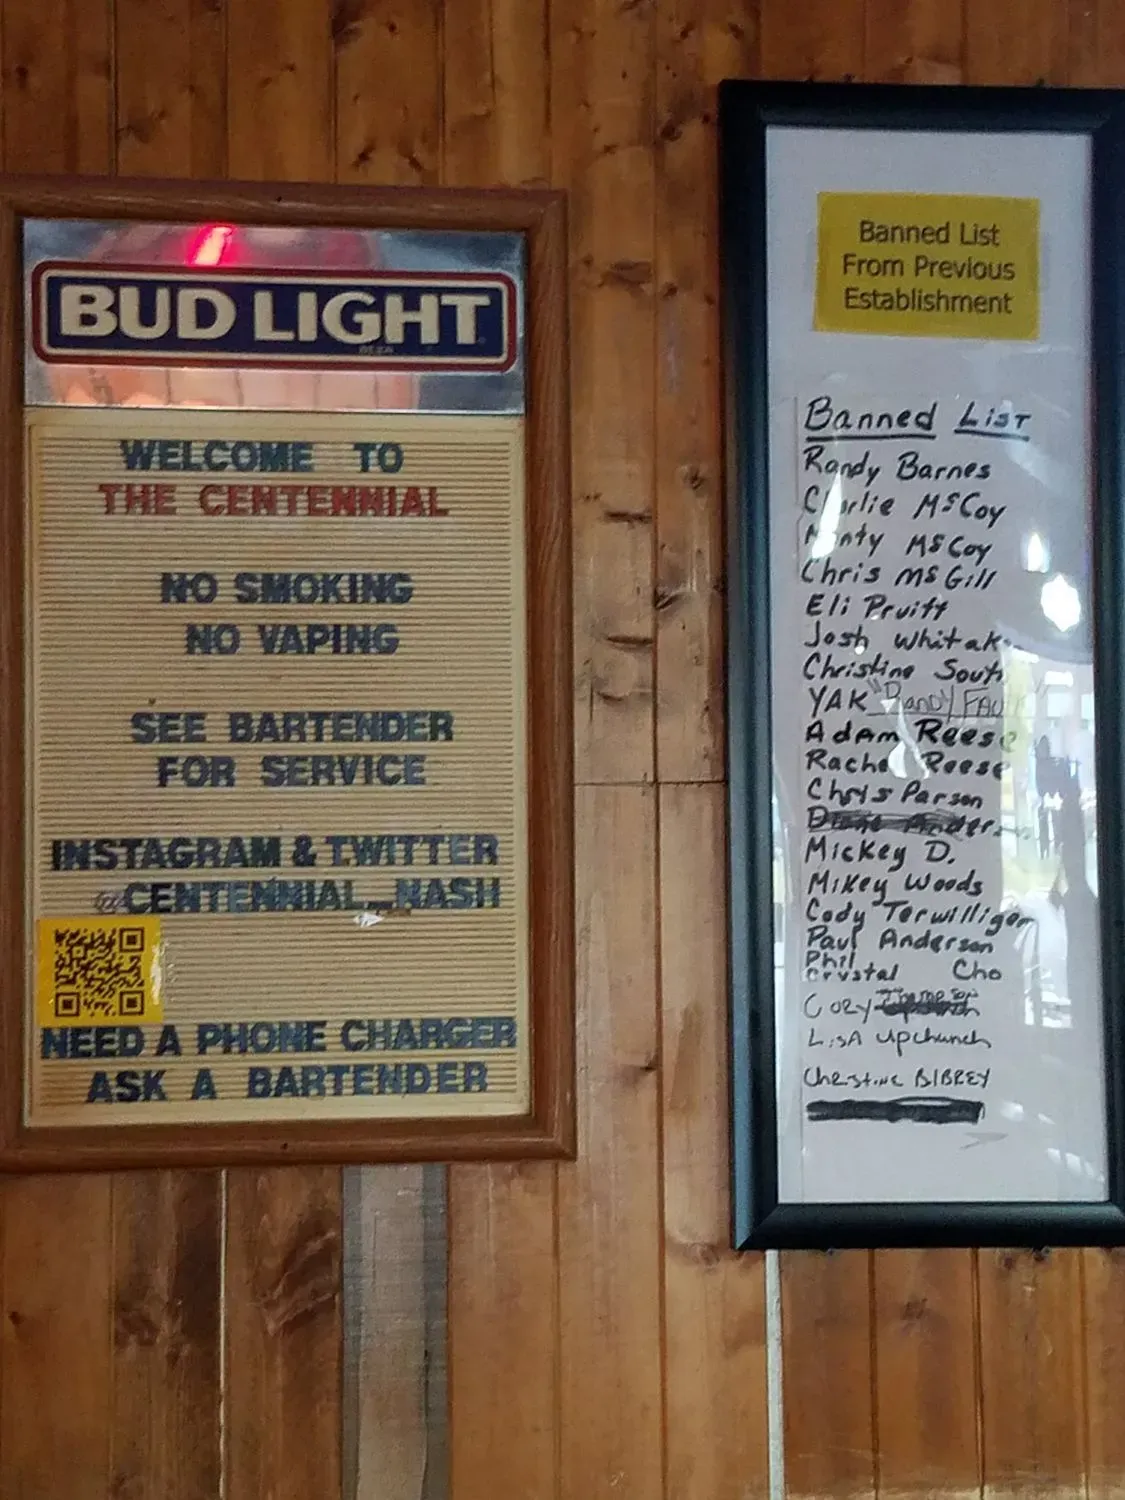 BUD LIGHT
BEER
WELCOME TO
THE CENTENNIAL
NO SMOKING
NO VAPING
SEE BARTENDER
FOR SERVICE
INSTAGRAM & TWITTER
@CENTENNIAL_NASH
NEED A PHONE CHARGER
ASK A BARTENDER
Banned List
From Previous
Establishment
Banned List
Randy Barnes
McCoy
McCoy
Chris McGill
Eli Pruitt
Josh
Christine
YAK "Randy
Adam Reese
Reese
Chris Parson
Mickey D.
Mikey Woods
Cody Terwilliger
Paul Anderson
Phil
Crystal Cho
Cory
Lisa Upchurch
Christine BIBREY